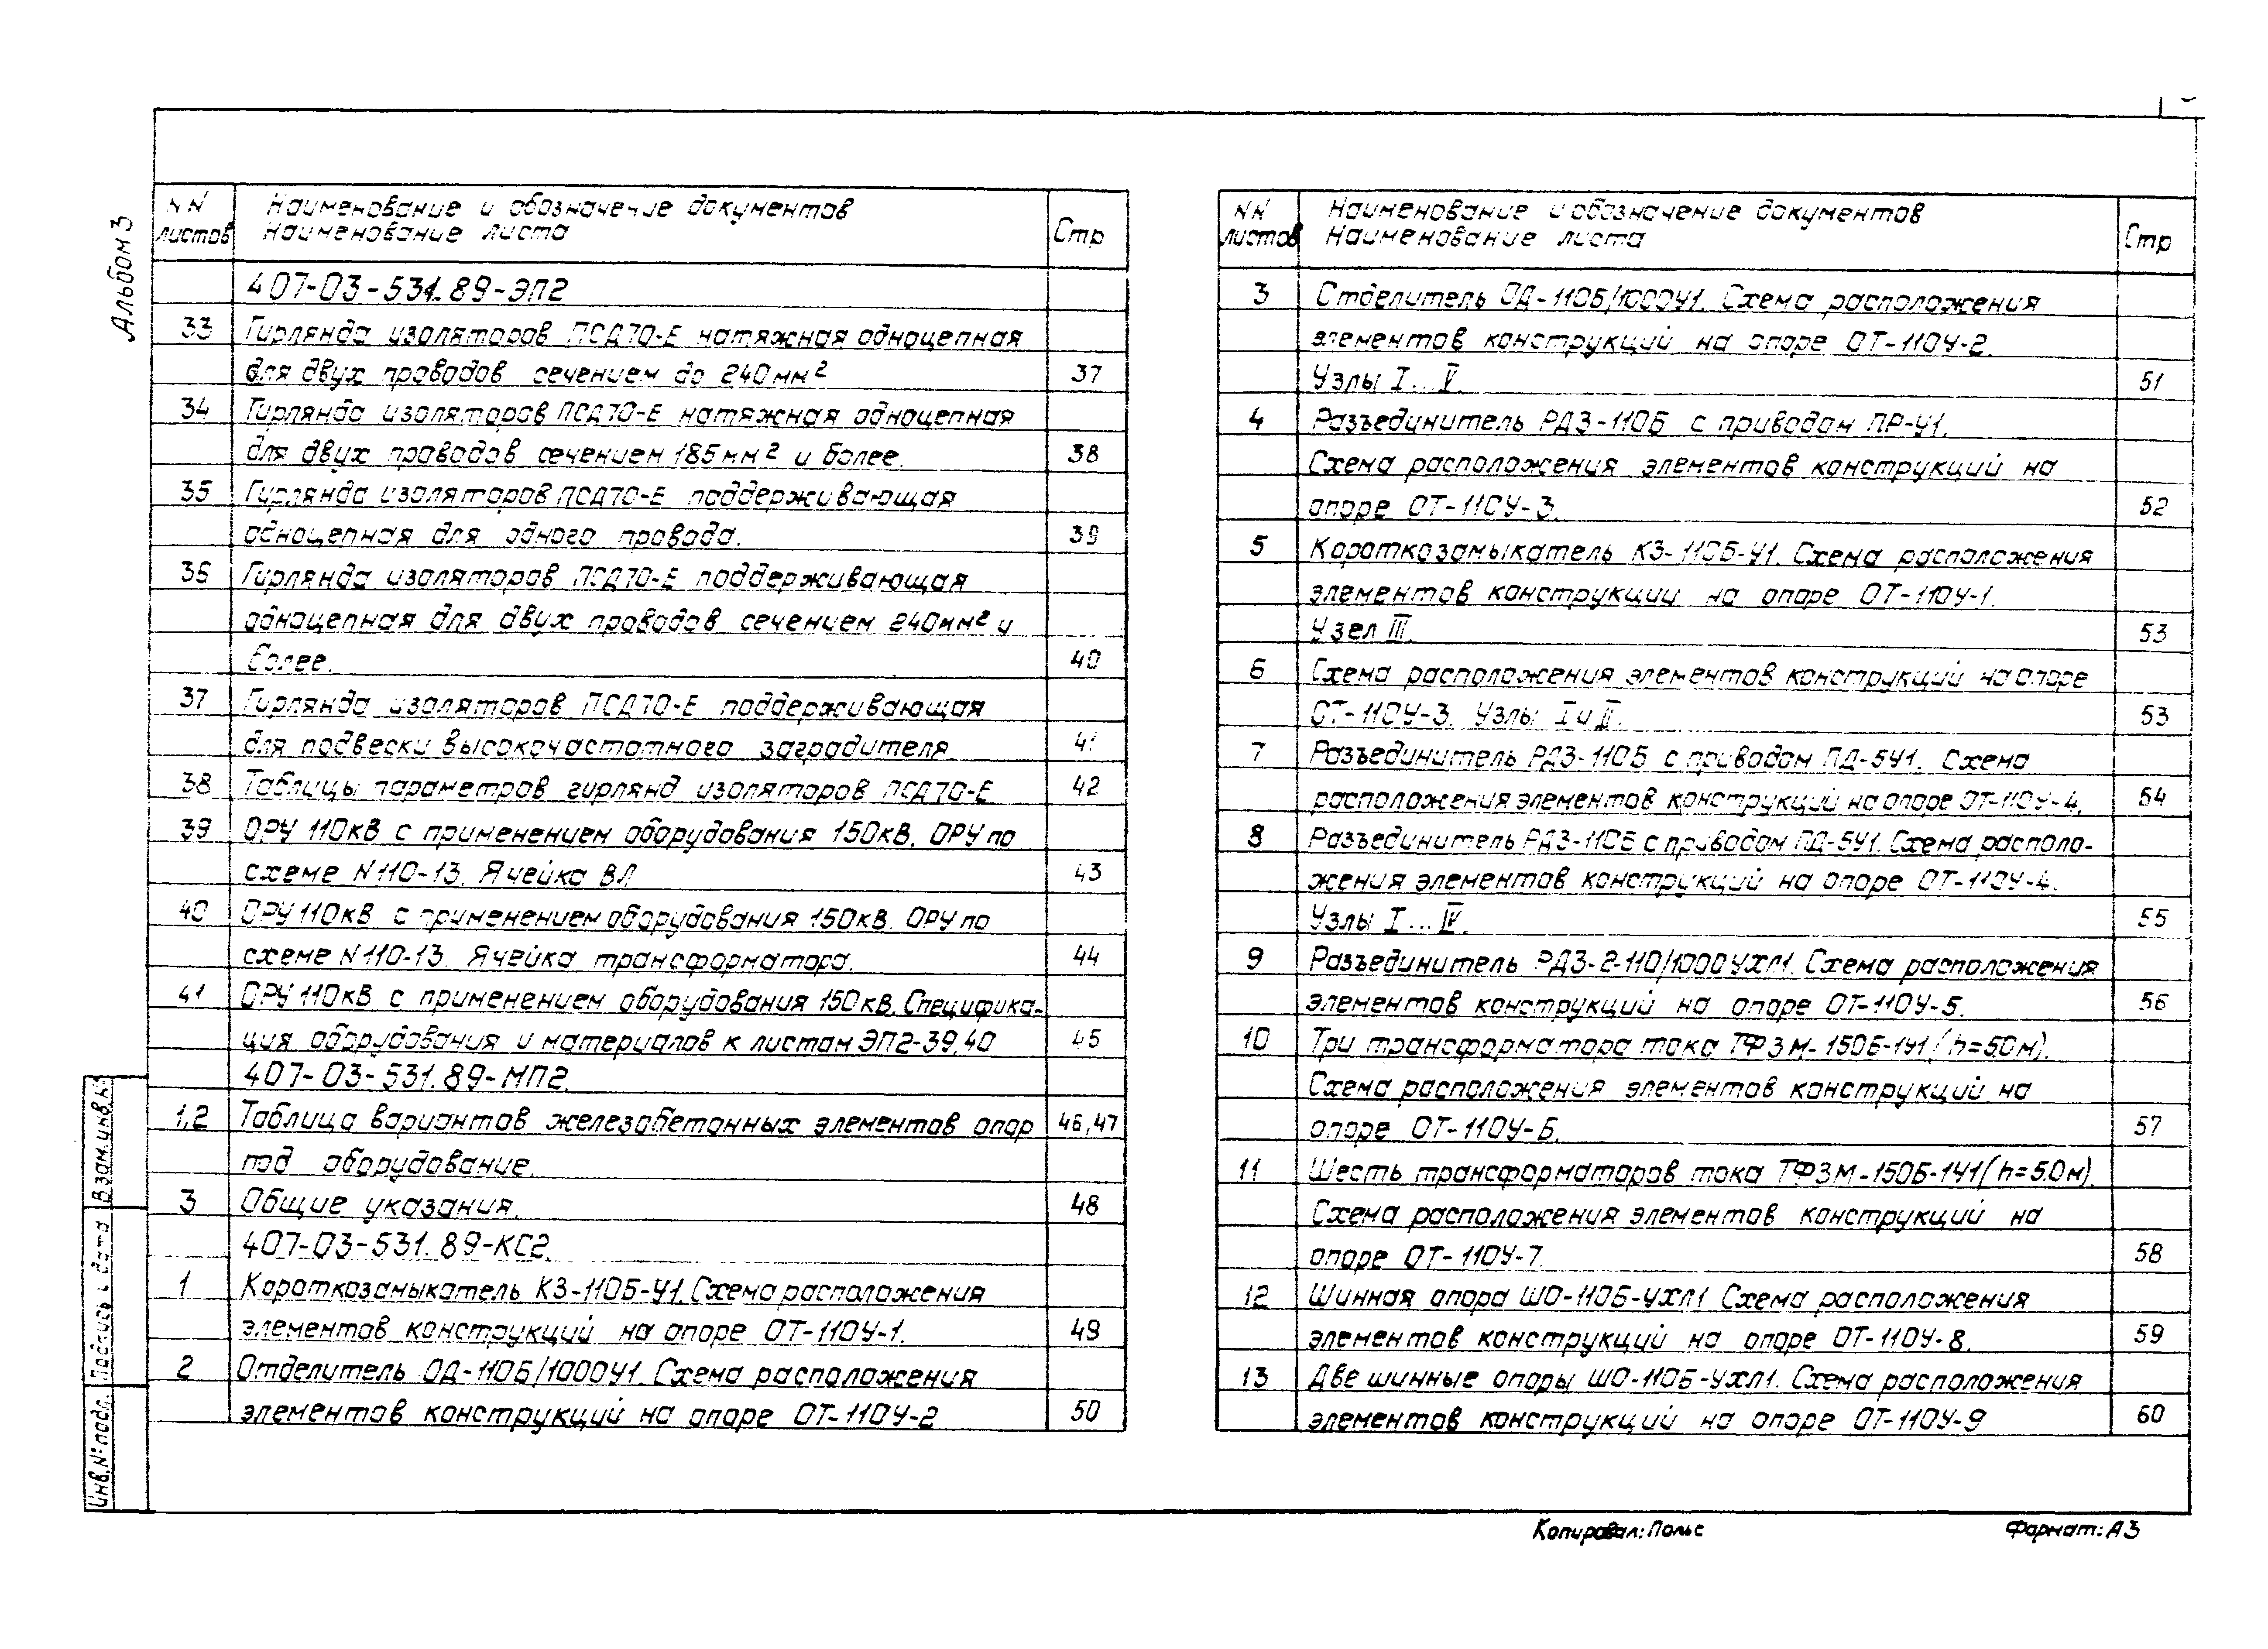 Альбом 3
NN листов
Наименование и обозначение документов
Наименование листа
Стр
407-03-531.89-ЭП2
33 Гирлянда изоляторов ПСД70-Е натяжная одноцепная
для двух проводов сечением до 240мм² 37
34 Гирлянда изоляторов ПСД70-Е натяжная одноцепная
для двух проводов сечением 185мм² и более. 38
35 Гирлянда изоляторов ПСД70-Е поддерживающая
одноцепная для одного провода. 39
36 Гирлянда изоляторов ПСД70-Е поддерживающая
одноцепная для двух проводов сечением 240мм² и
более. 40
37 Гирлянда изоляторов ПСД70-Е поддерживающая
для подвески высокочастотного заградителя. 41
38 Таблицы параметров гирлянд изоляторов ПСД70-Е. 42
39 ОРУ 110кВ с применением оборудования 150кВ. ОРУ по
схеме N110-13. Ячейка ВЛ 43
40 ОРУ 110кВ с применением оборудования 150кВ. ОРУ по
схеме N110-13. Ячейка трансформатора. 44
41 ОРУ 110кВ с применением оборудования 150кВ. Специфика-
ция оборудования и материалов к листам ЭП2-39,40 45
407-03-531.89-МП2.
1,2 Таблица вариантов железобетонных элементов опор 46,47
под оборудование.
3 Общие указания. 48
407-03-531.89-КС2.
1 Короткозамыкатель КЗ-110Б-У1. Схема расположения
элементов конструкций на опоре ОТ-110У-1. 49
2 Отделитель ОД-110Б/1000У1. Схема расположения
элементов конструкций на опоре ОТ-110У-2 50
NN листов
Наименование и обозначение документов
Наименование листа
Стр
3 Отделитель ОД-110Б/1000У1. Схема расположения
элементов конструкций на опоре ОТ-110У-2.
Узлы I...V. 51
4 Разъединитель РДЗ-110Б с приводом ПР-У1.
Схема расположения элементов конструкций на
опоре ОТ-110У-3. 52
5 Короткозамыкатель КЗ-110Б-У1. Схема расположения
элементов конструкции на опоре ОТ-110У-1.
Узел III. 53
6 Схема расположения элементов конструкций на опоре
ОТ-110У-3. Узлы I и II. 53
7 Разъединитель РДЗ-110Б с приводом ПД-5У1. Схема
расположения элементов конструкций на опоре ОТ-110У-4. 54
8 Разъединитель РДЗ-110Б с приводом ПД-5У1. Схема располо-
жения элементов конструкций на опоре ОТ-110У-4.
Узлы I...IV. 55
9 Разъединитель РДЗ-2-110/1000УХЛ1. Схема расположения
элементов конструкций на опоре ОТ-110У-5. 56
10 Три трансформатора тока ТФЗМ-150Б-1У1 (h=5.0м).
Схема расположения элементов конструкций на
опоре ОТ-110У-6. 57
11 Шесть трансформаторов тока ТФЗМ-150Б-1У1 (h=5.0м).
Схема расположения элементов конструкций на
опоре ОТ-110У-7. 58
12 Шинная опора ШО-110Б-УХЛ1 Схема расположения
элементов конструкций на опоре ОТ-110У-8. 59
13 Две шинные опоры ШО-110Б-УХЛ1. Схема расположения
элементов конструкций на опоре ОТ-110У-9 60
Взам.инв.N
Подпись и дата
Инв.N° подл.
Копировал: Польс
Формат: А3